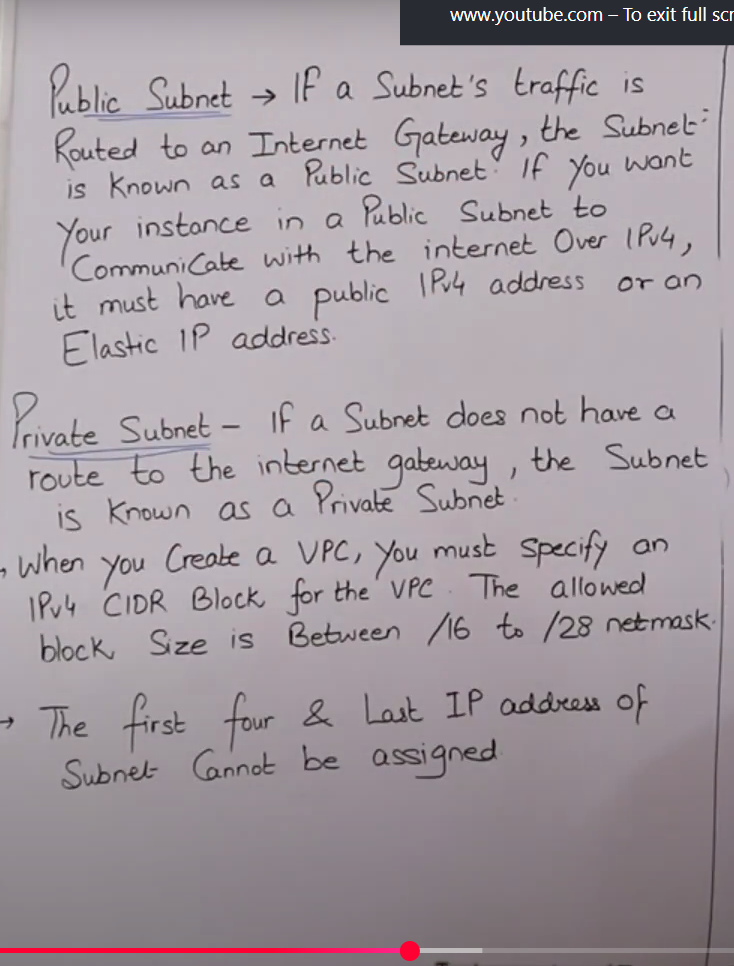 www.youtube.com – To exit full scr
Public Subnet → If a Subnet's traffic is
Routed to an Internet Gateway, the Subnet
is Known as a Public Subnet. If You want
Your instance in a Public Subnet to
Communicate with the internet Over IPv4,
it must have a public IPv4 address or an
Elastic IP address.
Private Subnet – If a Subnet does not have a
route to the internet gateway, the Subnet
is Known as a Private Subnet.
→ When you Create a VPC, You must Specify an
IPv4 CIDR Block for the VPC. The allowed
block Size is Between /16 to /28 netmask.
→ The first four & Last IP address of
Subnet Cannot be assigned